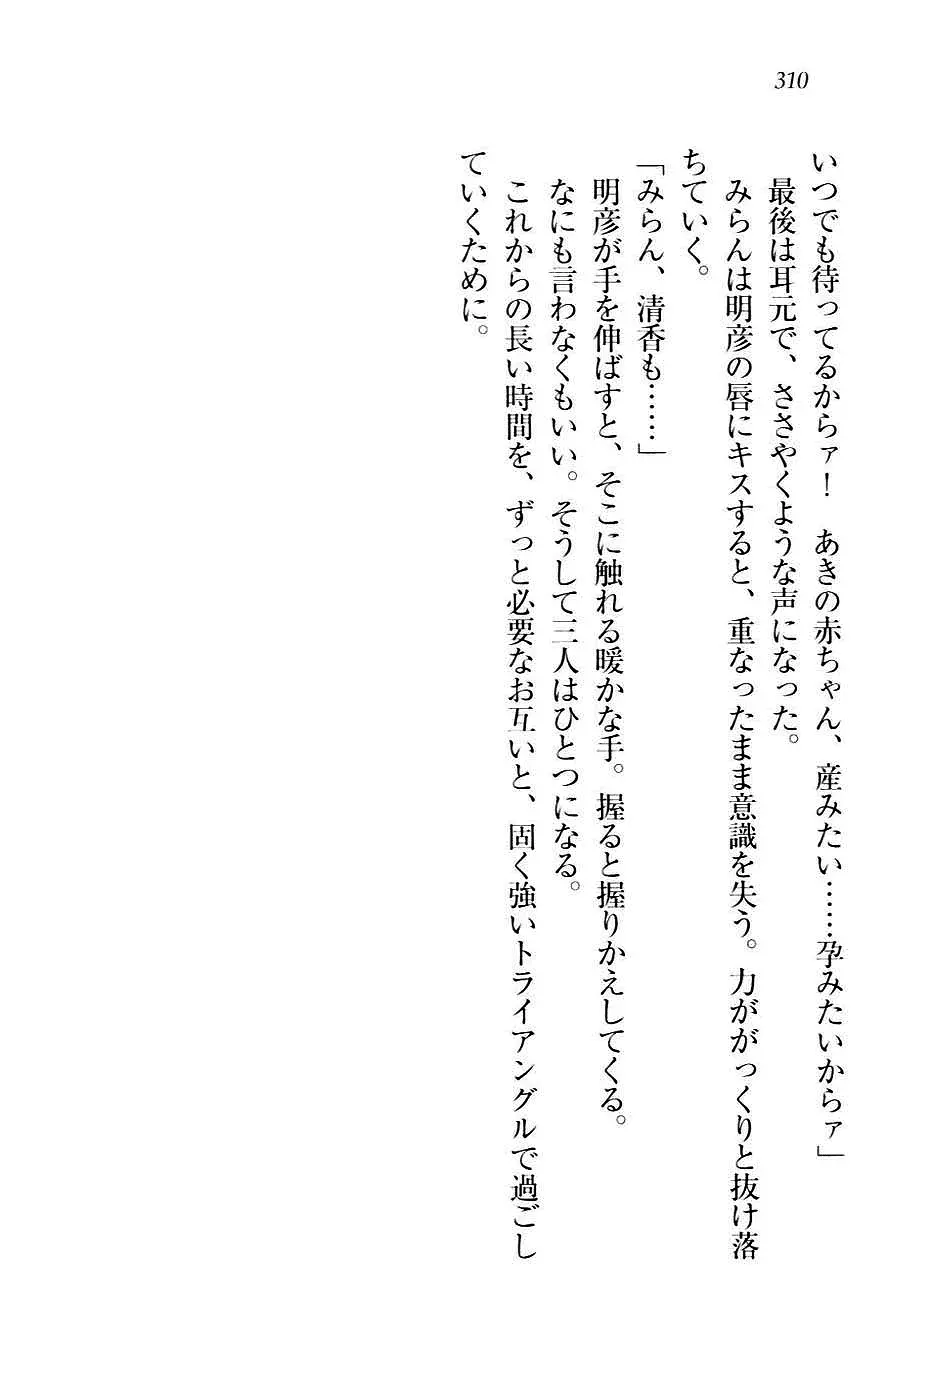 310
いつでも待ってるからァ！　あきの赤ちゃん、産みたい……孕みたいからァ」
　最後は耳元で、ささやくような声になった。
　みらんは明彦の唇にキスすると、重なったまま意識を失う。力ががっくりと抜け落
ちていく。
「みらん、清香も……」
　明彦が手を伸ばすと、そこに触れる暖かな手。握ると握りかえしてくる。
　なにも言わなくもいい。そうして三人はひとつになる。
　これからの長い時間を、ずっと必要なお互いと、固く強いトライアングルで過ごし
ていくために。